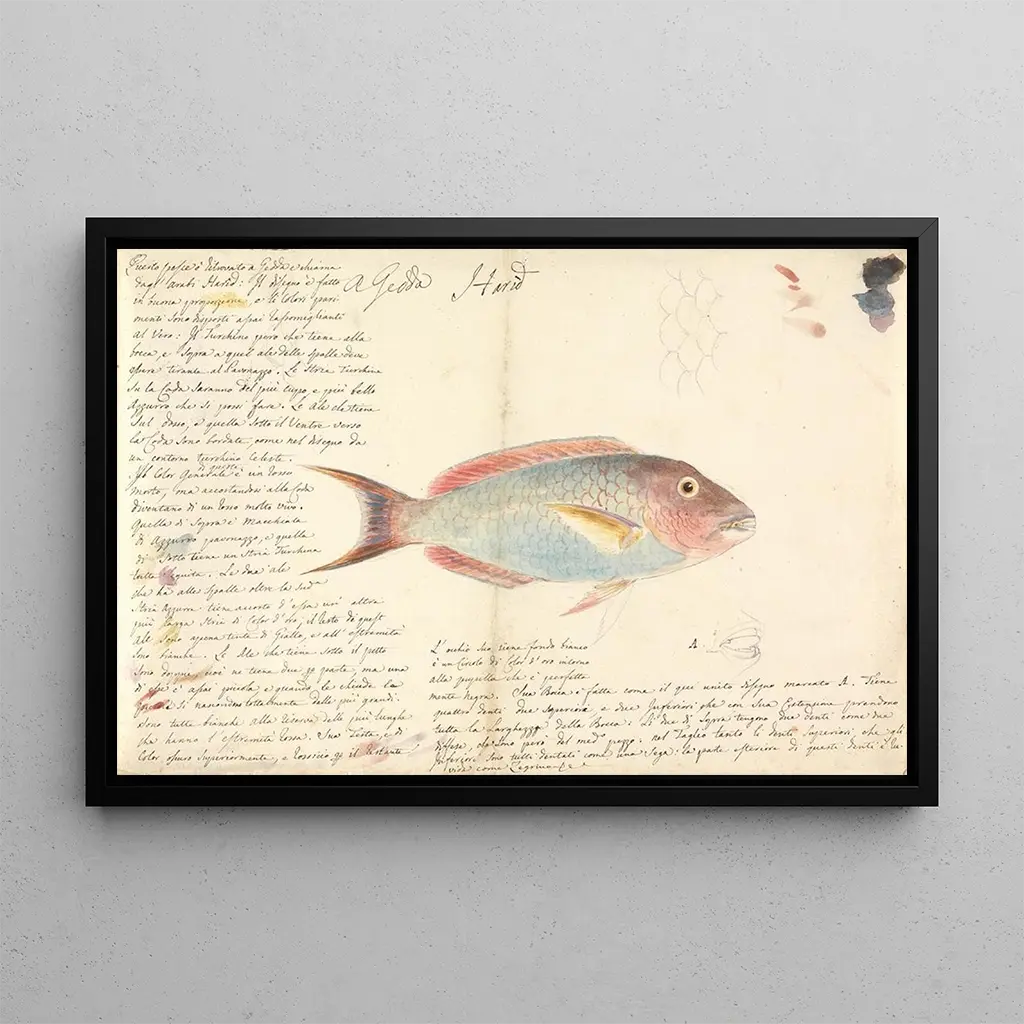 Questo pesce è ritrovato a Gedda e chiama
dagl' arabi Harid: Il disegno è fatto
in buona proporzione, e li Colori pari
menti sono disposti assai rassomiglianti
al Vero: Il Turchino pero che tiene alla
bocca, e sopra a quel ale delle spalle deve
essere tirante al Pavonazzo. Le Stria Turchine
su la Coda saranno del più cuppo, e più bello
Azzurro che si possi fare. Le ale che tiene
sul dosso, e quella sotto il Ventre verso
la Coda sono bordate, come nel disegno da
un contorno turchino Celeste.
Il Color Generale di queste è un Rosso
morto, ma accostandosi alla Coda
diventano di un Rosso molto vivo.
Quella di Sopra è Macchiata
di Azzurro pavonazzo, e quella
di Sotto tiene un Stria Turchina
tutta seguita. Le due ale
che ha alle Spalle oltre la sud.a
Stria Azzurra tiene accosto d'essa un' altra
più larga Stria di Color d'oro; il resto di quest
ale sono appena tente di Giallo, e all' estremità
sono bianche. Le Ale che tiene sotto il petto
sono doppie, cioè ne tiene due per parte, ma una
di esse è assai piccola, e quando le chiude la
si nascondono totalmente delle più grandi.
Sono tutte bianche alla riserva delle più lunghe
che hanno l'estremità Rossa. Sua Testa, e di
Color oscuro Superiormente, e Rossiccio il Restante
A Gedda Harid
A.
L'occhio suo tiene fondo bianco
è un Circolo di Color d'oro intorno
alla pupilla che è perfetta
mente Negra. Sua Bocca è fatta come il qui unito disegno marcato A. Tiene
quattro denti due Superiori e due Inferiori che con Sua Estensione prendono
tutta la Larghezza della Bocca: Li due di Sopra tengono due denti come due
diffese, che sono però del med.o pezzo. nel Taglio tanto li denti Superiori, che gli
Inferiori sono tutti dentati come una Sega: la parte esteriore di questi denti è Ru
vida come